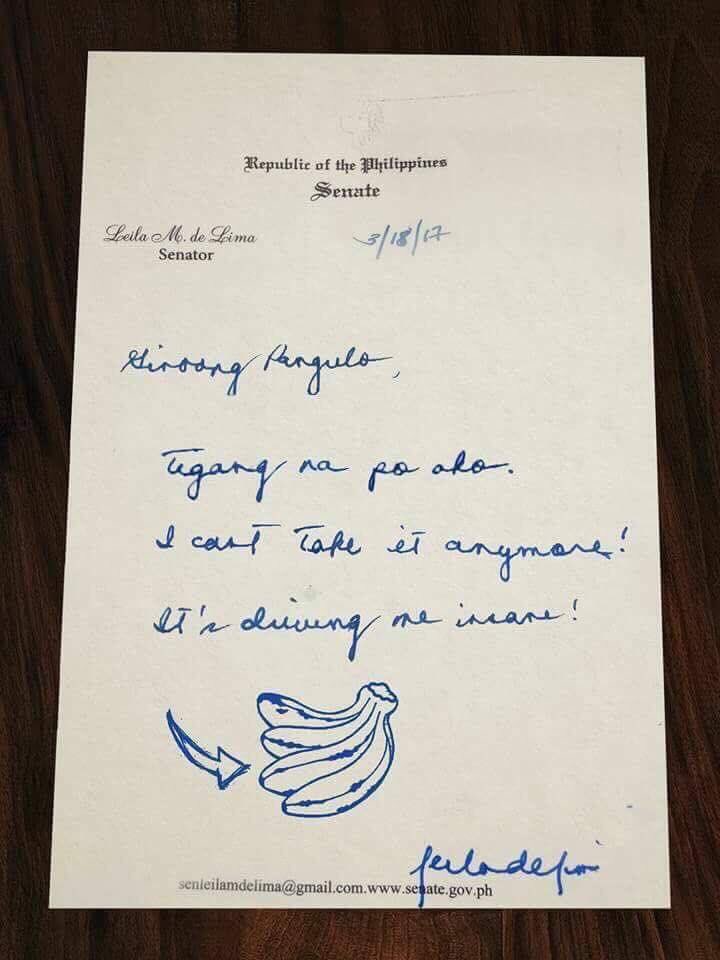 Republic of the Philippines
Senate
Leila M. de Lima
Senator
3/18/17
Ginoong Pangulo,
Tigang na po ako.
I can't take it anymore!
It's driving me insane!
leiladelima
senleilamdelima@gmail.com.www.senate.gov.ph